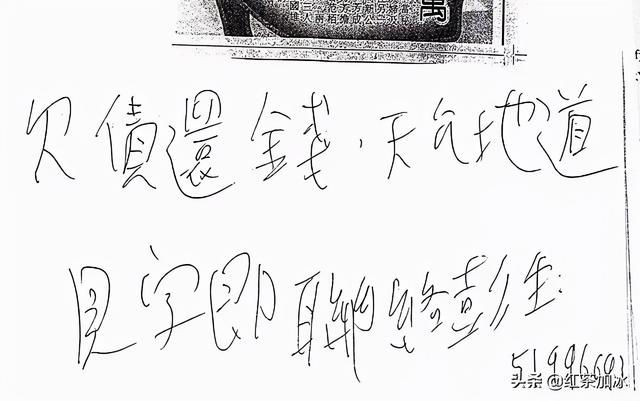 萬
欠債還錢，天公地道
見字即聯絡彭生：
头条 @红茶加冰